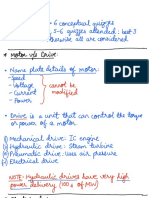 - 6 conceptual quizzes
- 5-6 quizzes attended: best 3
otherwise all are considered
* Motor v/s Drive
• Name plate details of motor:
-Speed
-Voltage
-Current
-Power
cannot be
modified
• Drive is a unit that can control the torque
or power of a motor.
i) Mechanical drive: IC engine
ii) Hydraulic drive: Steam turbine
iii) Pneumatic drive: Uses air pressure
iv) Electrical drive
NOTE: Hydraulic drives have very high
power delivery (100s of MW)